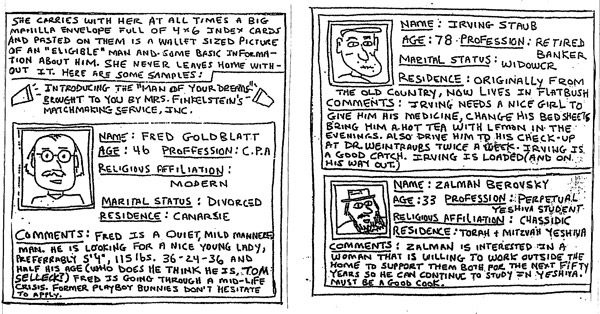 SHE CARRIES WITH HER AT ALL TIMES A BIG
MANILLA ENVELOPE FULL OF 4×6 INDEX CARDS
AND PASTED ON THEM IS A WALLET SIZED PICTURE
OF AN "ELIGIBLE" MAN AND SOME BASIC INFORMA-
TION ABOUT HIM. SHE NEVER LEAVES HOME WITH-
OUT IT. HERE ARE SOME SAMPLES:
INTRODUCING THE "MAN OF YOUR DREAMS"
BROUGHT TO YOU BY MRS. FINKELSTEIN'S
MATCHMAKING SERVICE, INC.
NAME: FRED GOLDBLATT
AGE: 46 PROFFESSION: C.P.A
RELIGIOUS AFFILIATION:
MODERN
MARITAL STATUS: DIVORCED
RESIDENCE: CANARSIE
COMMENTS: FRED IS A QUIET, MILD MANNERED
MAN. HE IS LOOKING FOR A NICE YOUNG LADY,
PREFERRABLY 5'4", 115 LBS. 36-24-36 AND
HALF HIS AGE (WHO DOES HE THINK HE IS, TOM
SELLECK?) FRED IS GOING THROUGH A MID-LIFE
CRISIS. FORMER PLAYBOY BUNNIES DON'T HESITATE
TO APPLY.
NAME: IRVING STAUB
AGE: 78 PROFESSION: RETIRED
BANKER
MARITAL STATUS:
WIDOWER
RESIDENCE: ORIGINALLY FROM
THE OLD COUNTRY, NOW LIVES IN FLATBUSH
COMMENTS: IRVING NEEDS A NICE GIRL TO
GIVE HIM HIS MEDICINE, CHANGE HIS BEDSHEETS
BRING HIM A HOT TEA WITH LEMON IN THE
EVENINGS. ALSO DRIVE HIM TO HIS CHECK-UP
AT DR. WEINTRAUBS TWICE A WEEK. IRVING IS
A GOOD CATCH. IRVING IS LOADED (AND ON
HIS WAY OUT.)
NAME: ZALMAN BEROVSKY
AGE: 33 PROFESSION: PERPETUAL
YESHIVA STUDENT
RELIGIOUS AFFILIATION: CHASSIDIC
RESIDENCE: TORAH + MITZVAH YESHIVA
COMMENTS: ZALMAN IS INTERESTED IN A
WOMAN THAT IS WILLING TO WORK OUTSIDE THE
HOME TO SUPPORT THEM BOTH FOR THE NEXT FIFTY
YEARS SO HE CAN CONTINUE TO STUDY IN YESHIVA.
MUST BE A GOOD COOK.